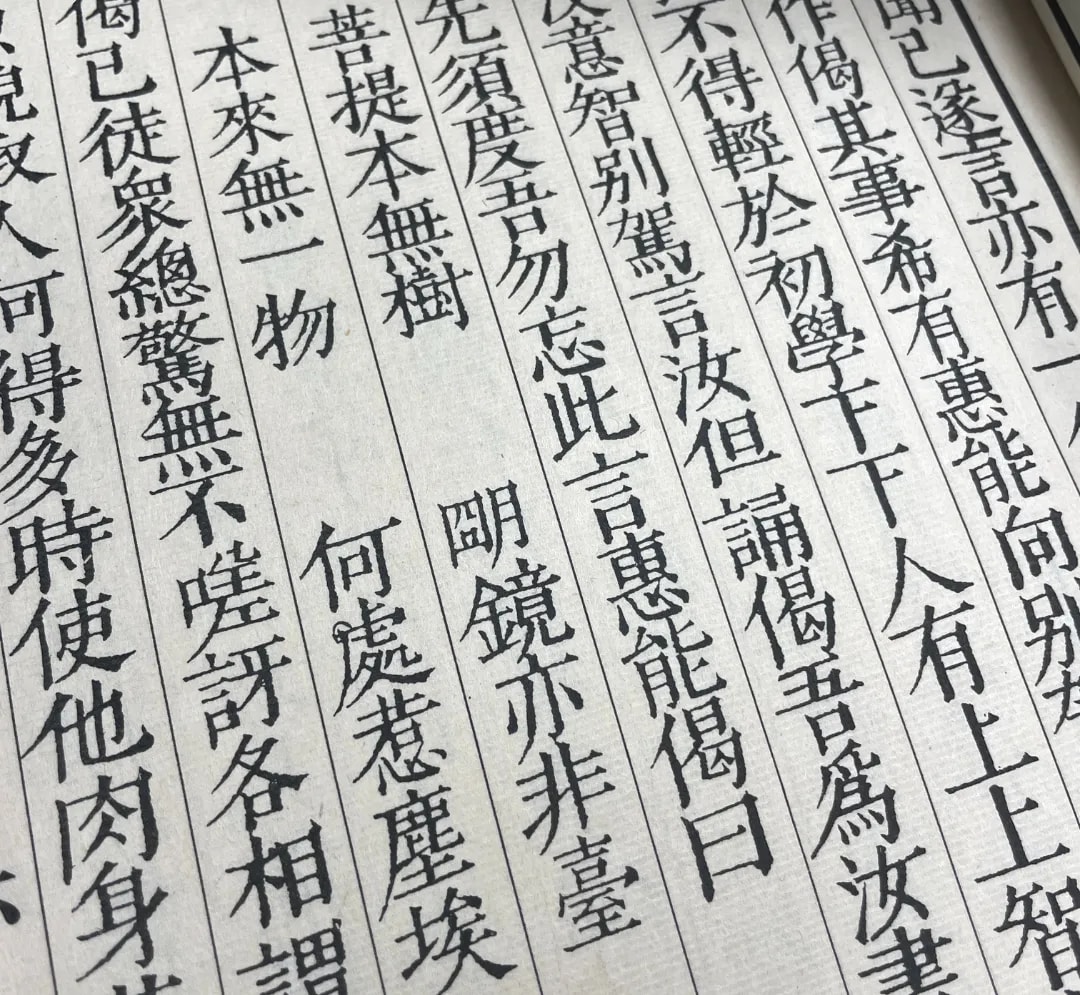 聞已遂言亦有一
作偈其事希有惠能向别
不得輕於初學下下人有上上智
意智别駕言汝但誦偈吾爲汝書
先須度吾勿忘此言惠能偈曰
菩提本無樹 朙鏡亦非臺
本來無一物 何處惹塵埃
偈已徒衆總驚無不嗟訝各相謂
貌取人何得多時使他肉身